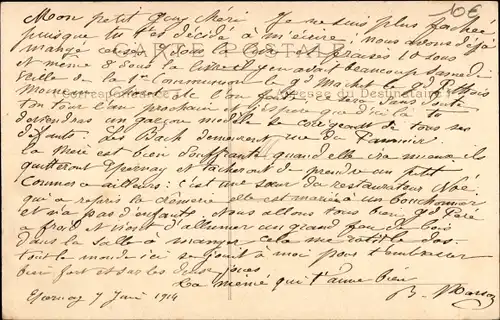 10€
Mon petit Guy chéri Je ne suis plus fachée
puisque tu t'es décidé à m'écrire, nous avons déjà
CARTE POSTALE
mangé fraises 10 sous
et même 8 sous la livre il y en avait beaucoup samedi
veille de la 1re Communion
Correspondance Adresse du Destinataire
ton tour l'an prochain et j'espère que d'ici là tu
deviendras un garçon modèle te corrigeant de tous ses
défauts. Les Bach demeurent rue de
la mère est bien souffrante quand elle ira mieux ils
quitteront Epernay et tacheront de prendre un petit
Commerce ailleurs; c'est une sœur du restaurateur Noé
qui a repris la crèmerie elle est mariée à un bouchonnier
et n'a pas d'enfants. Nous allons tous bien gd Père
a froid et vient d'allumer un grand feu de bois
dans la salle à manger, cela me rotit le dos
tout le monde ici se joint à moi pour t'embrasser
bien fort sur les deux joues
La mémé qui t'aime bien
Epernay 7 Juin 1914